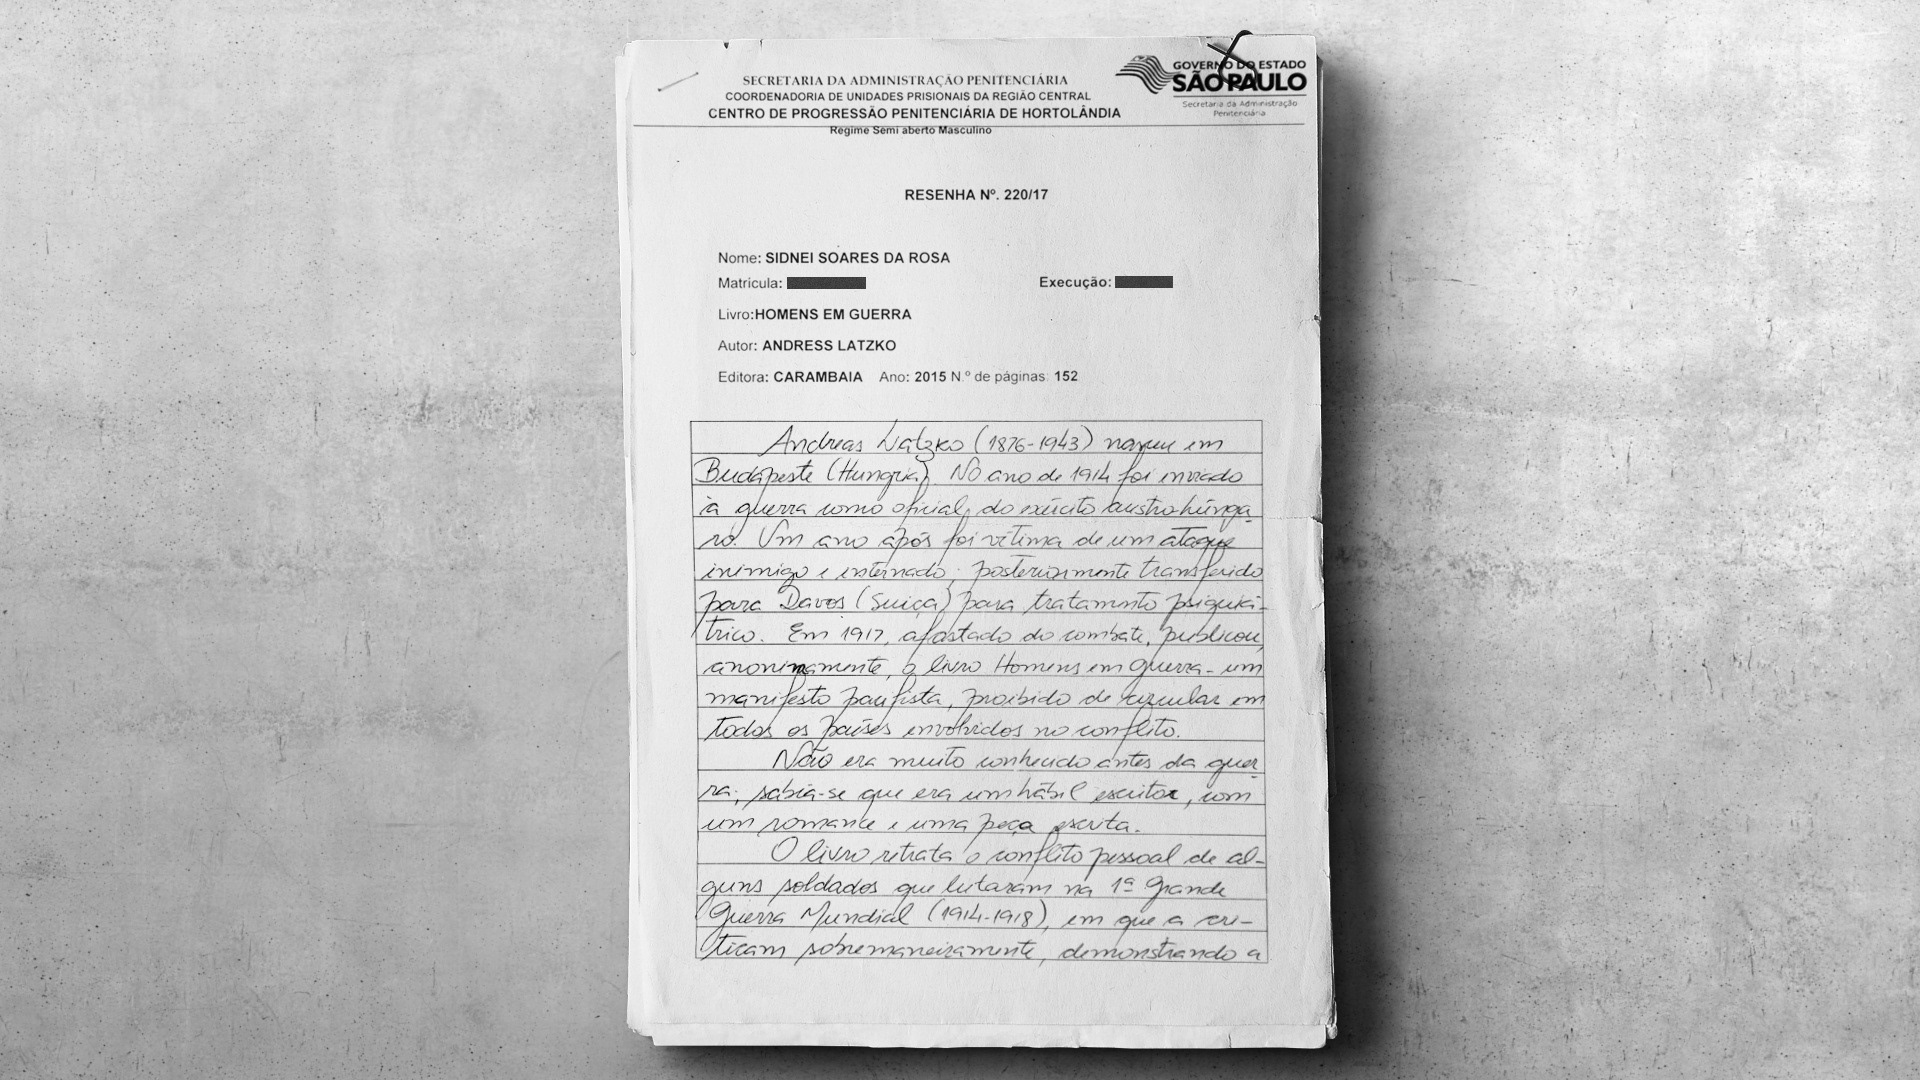 SECRETARIA DA ADMINISTRAÇÃO PENITENCIÁRIA
COORDENADORIA DE UNIDADES PRISIONAIS DA REGIÃO CENTRAL
CENTRO DE PROGRESSÃO PENITENCIÁRIA DE HORTOLÂNDIA
Regime Semi aberto Masculino
GOVERNO DO ESTADO
SÃO PAULO
Secretaria da Administração
Penitenciária
RESENHA Nº. 220/17
Nome: SIDNEI SOARES DA ROSA
Matricula:
Execução:
Livro:HOMENS EM GUERRA
Autor: ANDRESS LATZKO
Editora: CARAMBAIA Ano: 2015 N.º de páginas: 152
Andreas Latzko (1876-1943) nasceu em
Budapeste (Hungria). No ano de 1914 foi enviado
à guerra como oficial do exército austro-húnga-
ro. Um ano após foi vítima de um ataque
inimigo e internado; posteriormente transferido
para Davos (Suiça) para tratamento psiquiá-
trico. Em 1917, afastado do combate, publicou,
anonimamente, o livro Homens em guerra - um
manifesto pacifista, proibido de circular em
todos os países envolvidos no conflito.
Não era muito conhecido antes da guer-
ra; sabia-se que era um hábil escritor, com
um romance e uma peça escrita.
O livro retrata o conflito pessoal de al-
guns soldados que lutaram na 1ª Grande
Guerra Mundial (1914-1918), em que a cri-
ticam sobremaneiramente, demonstrando a